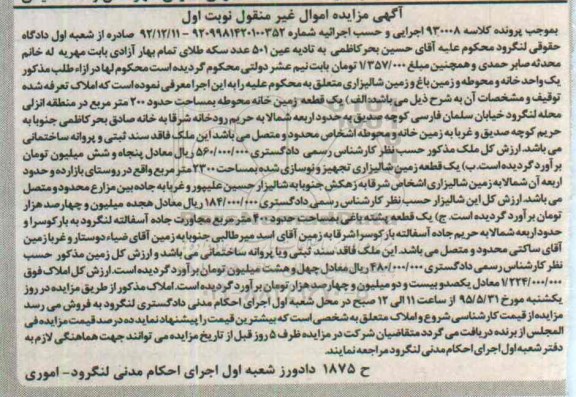 آگهی مزایده اموال غیر منقول نوبت اول
بموجب پرونده کلاسه 930008 اجرایی و حسب اجرائیه شماره 9209981420100352 - 92/12/11 صادره از شعبه اول دادگاه
حقوقی لنگرود محکوم علیه آقای حسین بحر کاظمی به تادیه عین 501 عدد سکه طلای تمام بهار آزادی بابت مهریه له خانم
محدثه صابر حمدی و همچنین مبلغ 1/357/000 تومان بابت نیم عشر دولتی محکوم گردیده است محکوم لها در ازاء طلب مذکور
یک واحد خانه و محوطه و زمین باغ و زمین شالیزاری متعلق به محکوم علیه را به این اجرا معرفی نموده است که املاک تعرفه شده
توقیف و مشخصات آن به شرح ذیل می باشد: الف) یک قطعه زمین خانه محوطه بمساحت حدود 200 متر مربع در منطقه انزلی
محله لنگرود خیابان سلمان فارسی کوچه صدیق به حدود اربعه شمالا به حریم رودخانه شرقا به خانه صادق بحر کاظمی جنوبا به
حریم کوچه صدیق و غربا به زمین خانه و محوطه اشخاص محدود و متصل می باشد این ملک فاقد سند ثبتی و پروانه ساختمانی
می باشد. ارزش کل ملک مذکور حسب نظر کارشناس رسمی دادگستری 560/000/000 ریال معادل پنجاه و شش میلیون تومان
برآورد گردیده است. ب) یک قطعه زمین شالیزاری تجهیز و نوسازی شده بمساحت 2300 متر مربع واقع در روستای بازارده و حدود
اربعه آن شمالا به زمین شالیزاری اشخاص شرقا به زهکش جنوبا به شالیزار حسین علیپور و غربا به جاده بین مزارع محدود و متصل
می باشد. ارزش کل این شالیزار حسب نظر کارشناس رسمی دادگستری 184/000/000 ریال معادل هجده میلیون و چهارصد هزار
تومان برآورد گردیده است. ج) یک قطعه پشته باغی به مساحت حدود 400 متر مربع مجاورت جاده آسفالته لنگرود به بارکوسرا و
حدود اربعه شمالا به حریم جاده آسفالته بارکوسرا شرقا به زمین آقای اسد میر طالبی جنوبا به زمین آقای ضیاء دوستار و غربا زمین
آقای ساکتی محدود و متصل می باشد. این ملک فاقد سند ثبتی و یا پروانه ساختمانی می باشد و ارزش کل زمین مذکور حسب
نظر کارشناس رسمی دادگستری 480/000/000 ریال معادل چهل و هشت میلیون تومان برآورد گردیده است. ارزش کل املاک فوق
1/224/000/000 معادل یکصد و بیست و دو میلیون و چهارصد هزار تومان برآورد گردیده است. املاک مذکور از طریق مزایده در روز
یکشنبه مورخ 95/5/31 از ساعت 11 الی 12 صبح در محل شعبه اول اجرای احکام مدنی دادگستری لنگرود به فروش می رسد
مزایده از قیمت کارشناسی شروع و املاک متعلق به شخصی است که بیشترین قیمت را پیشنهاد نماید ده درصد قیمت مزایده فی
المجلس از برنده دریافت می گردد متقاضیان شرکت در مزایده ظرف 5 روز قبل از تاریخ مزایده می توانند جهت هماهنگی لازم به
دفتر شعبه اول اجرای احکام مدنی لنگرود مراجعه نمایند.
ح 1875 دادورز شعبه اول اجرای احکام مدنی لنگرود - اموری